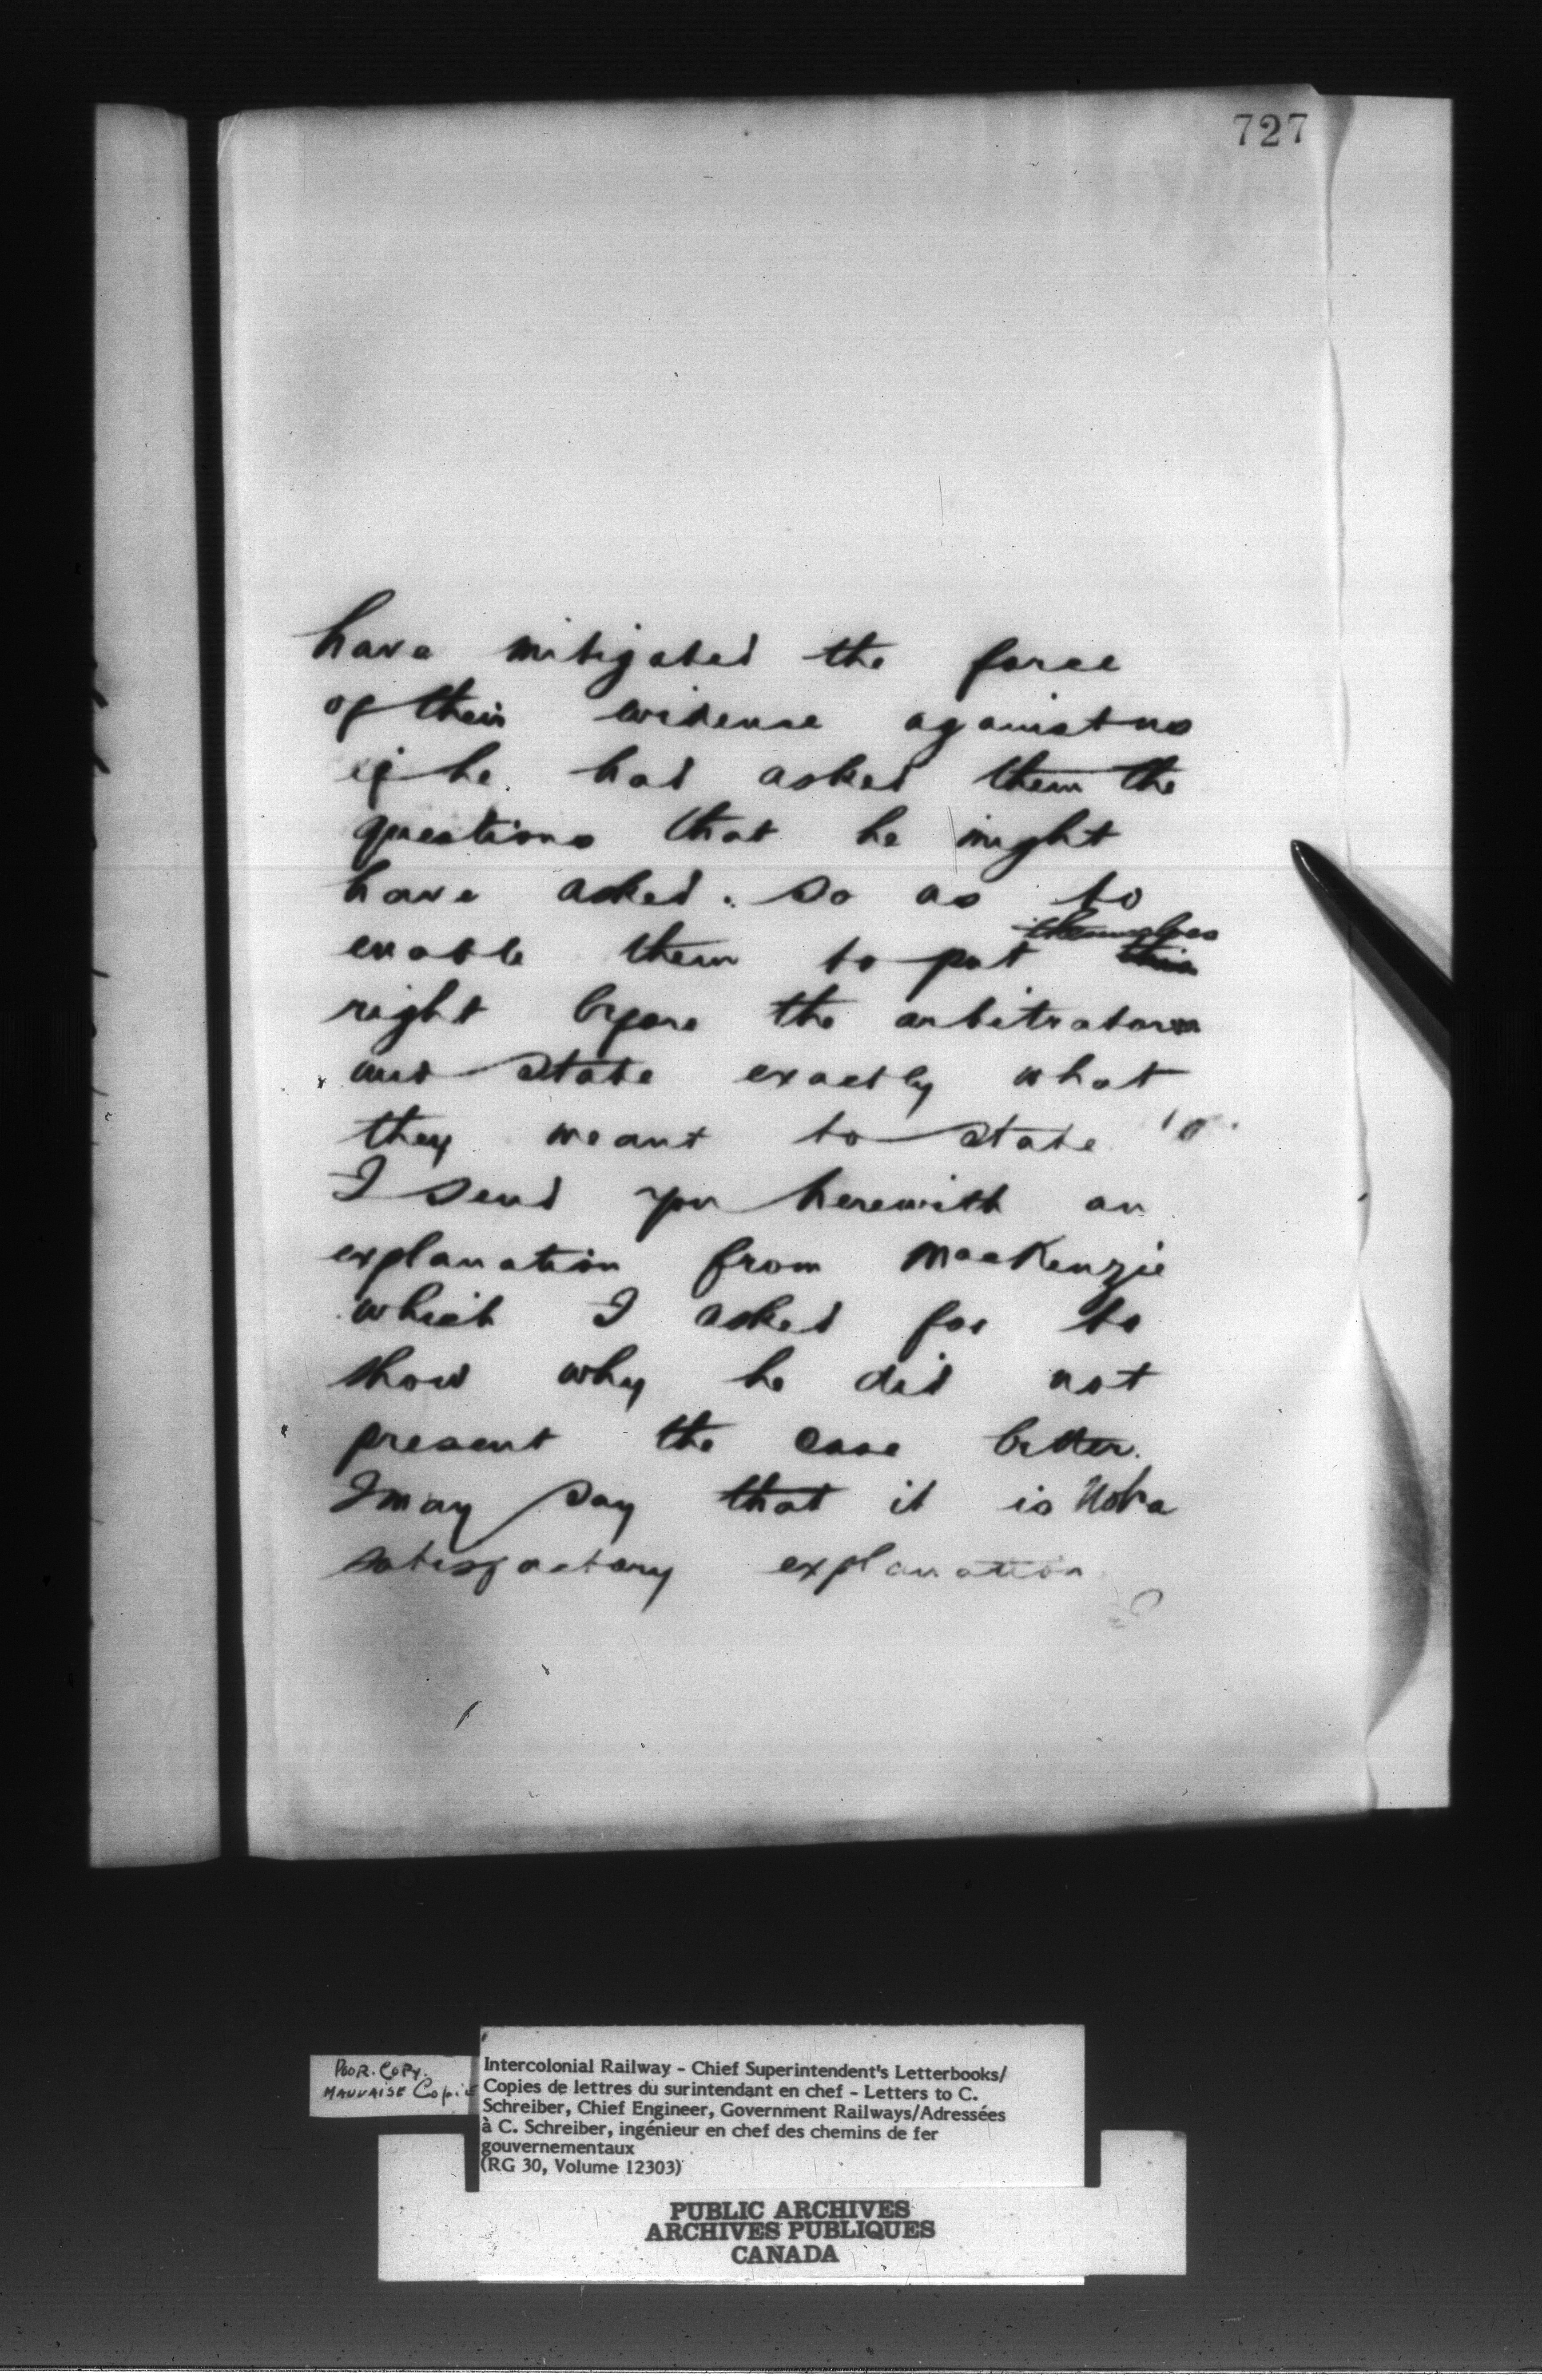 727
have mitigated the force
of their evidence against us
if he had asked them the
questions that he might
have asked. So as to
themselves
enable them to put this
right before the arbitrators
and state exactly what
they meant to state
I send you herewith an
explanation from MacKenzie
which I asked for to
show why he did not
present the case better.
I may say that it is Not a
satisfactory explanation
POOR. COPY.
MAUVAISE Copie
Intercolonial Railway - Chief Superintendent's Letterbooks/
Copies de lettres du surintendant en chef - Letters to C.
Schreiber, Chief Engineer, Government Railways/Adressées
à C. Schreiber, ingénieur en chef des chemins de fer
gouvernementaux
(RG 30, Volume 12303)
PUBLIC ARCHIVES
ARCHIVES PUBLIQUES
CANADA